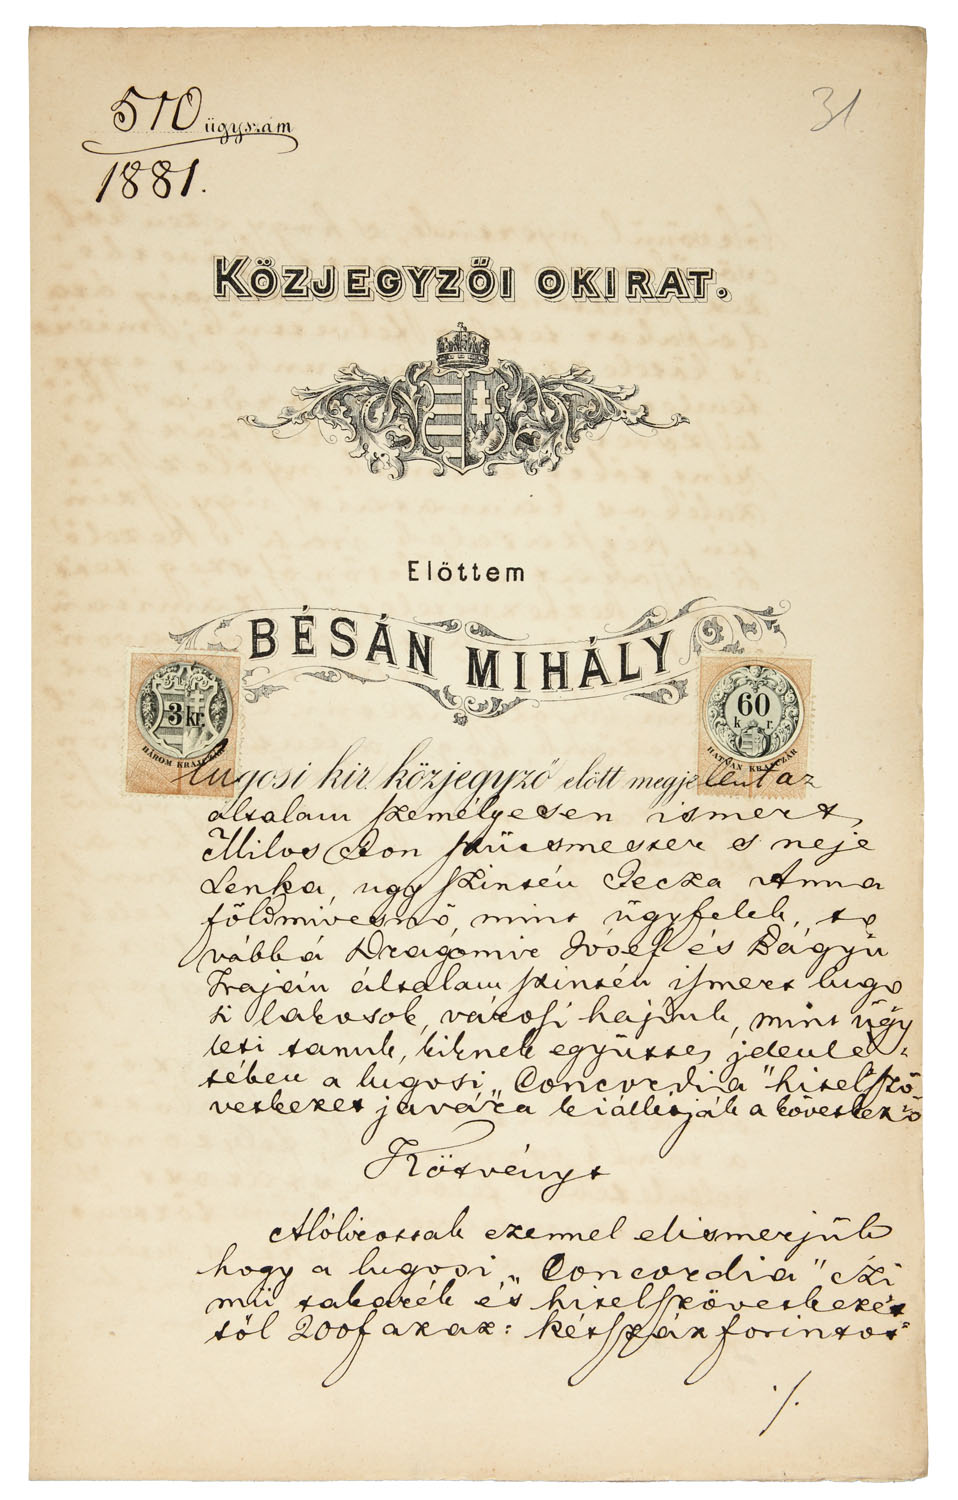 510 ügyszám
31
1881.
KÖZJEGYZŐI OKIRAT.
Előttem
BÉSÁN MIHÁLY
3 kr.
HÁROM KRAJCZÁR
60
k r.
HATVAN KRAJCZÁR
lugosi kir. közjegyző előtt megjelent az
általam személyesen ismert
Milos Ion szücsmester és neje
Lenka, ugy szintén Pecza Anna
földmivesnő, mint ügyfelek, to
vábbá Dragomir József és Bágyu
Traján általam szintén ismert lugo
si lakosok, városi hajduk, mint ügy
leti tanuk, kiknek együttes jelenlé-
tében a lugosi „Concordia" hitelszö-
vetkezet javára kiállitják a következő
Kötvényt
Alólirottak ezennel elismerjük
hogy a lugosi „Concordia" czi
mü takarék és hitelszövetkezet
től 200f azaz: kétszáz forintot
./.